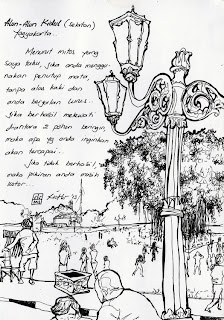 Alun-Alun Kidul (selatan)
Yogyakarta.
Menurut mitos yang
saya tahu, jika anda menggu
nakan penutup mata,
tanpa alas kaki dan
anda berjalan lurus.
Jika berhasil melewati
diantara 2 pohon beringin,
maka apa yg anda inginkan
akan tercapai..
Jika tidak berhasil,
maka pikiran anda masih
kotor...